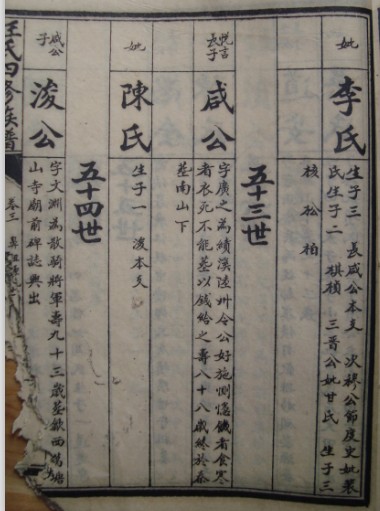 妣
李氏
生子三 長咸公本支 次穆公節度史妣
氏生子二 祺楨 三晉公妣甘氏 生子三
核 松 柏
五十三世
悅言
長子
咸公
字廣之為績溪陸州令公好施惻隱饑有食寒
者衣死不能塟以錢給之壽八十八歲終於泰
塟南山下
妣
陳氏
生子一 浚本支
五十四世
咸公
子
浚公
字文淵為散騎將軍壽九十三歲塟歙西
山寺廟前碑誌典出
氏四修族譜
卷三